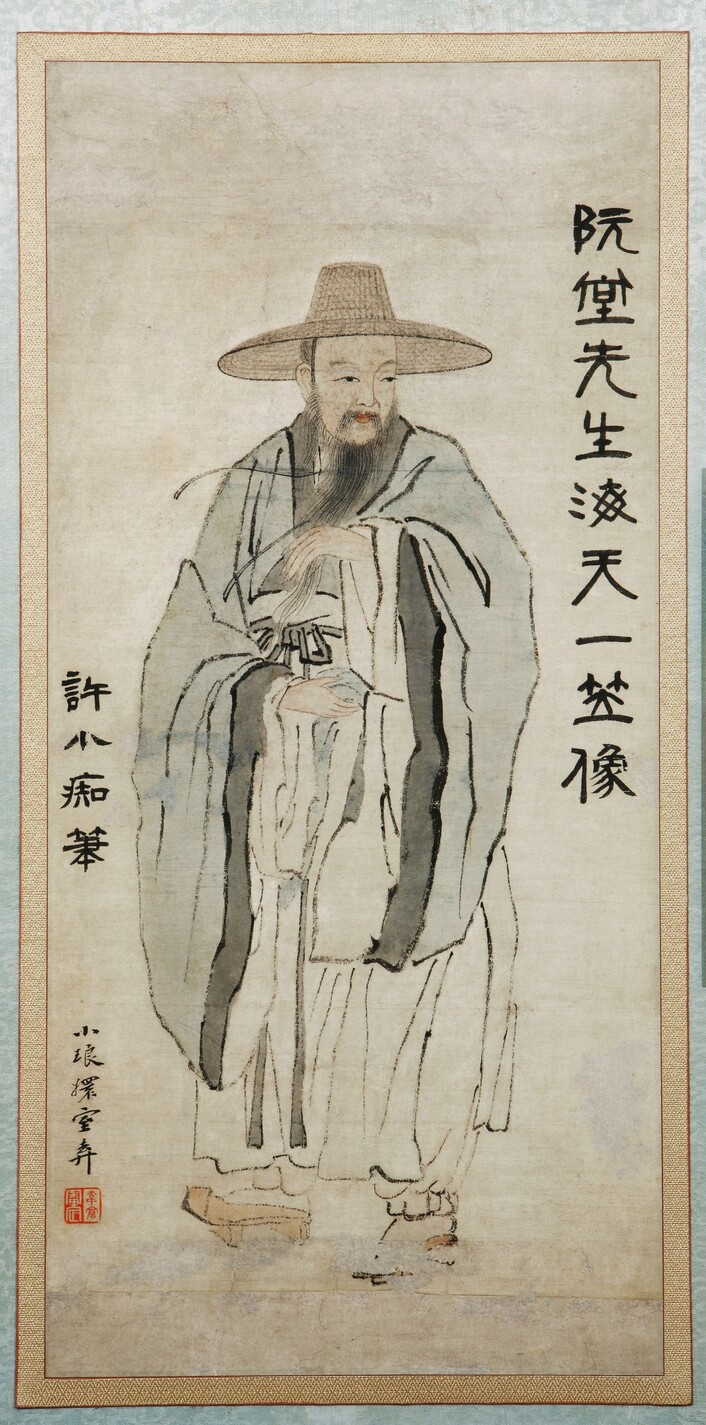 阮堂先生海天一笠像
許小痴筆
小琅嬛室弆